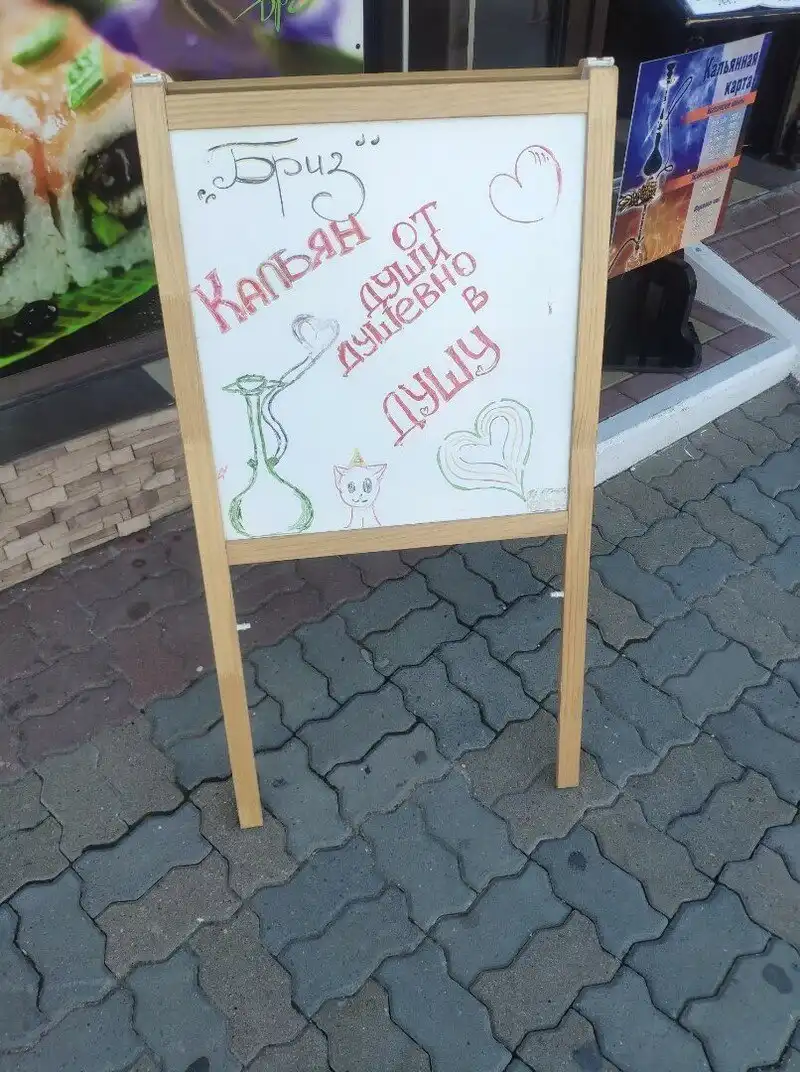 „Бриз”
Кальян от
души
душевно
в
душу
Кальянная
карта